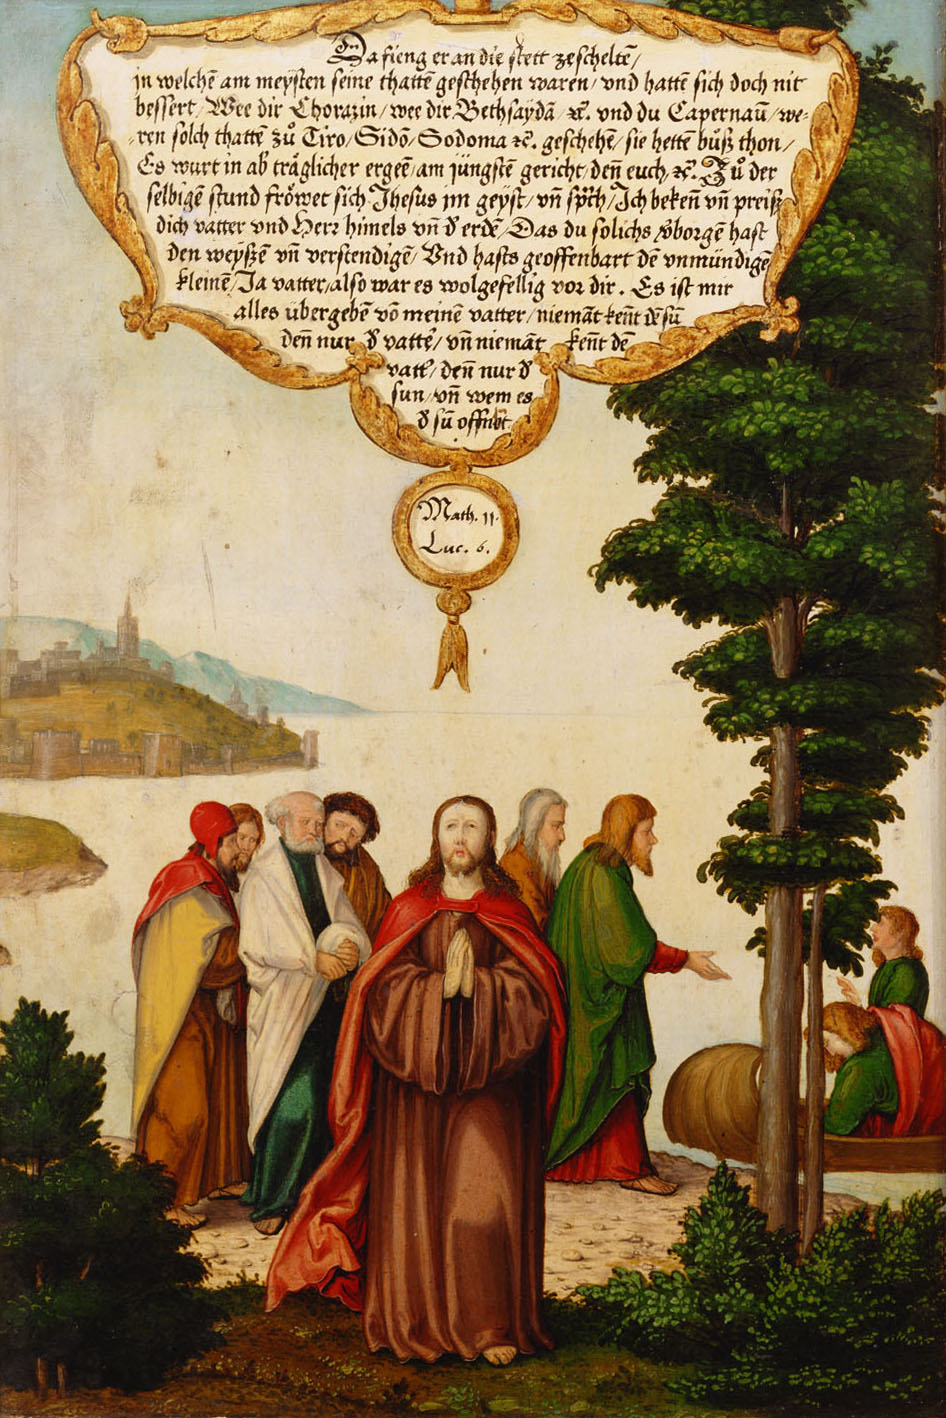 Da fieng er an die stett zescheltē/
in welchē am meysten seine thattē geschehen waren/ vnd hattē sich doch nit
bessert/ Wee dir Chorazin/ wee dir Bethsaydā ⁊c̄. vnd du Capernaū/ we-
ren solch thattē zů Tiro/ Sidō/ Sodoma ⁊c̄. geschehē/ sie hettē bůsz thon/
Es wurt in ab träglicher ergeē/ am jüngstē gericht/ deñ euch/ ⁊c̄. Zů der
selbigē stund fröwet sich Jhesus im geyst/ vñ sprch/ Ich bekeñ vñ preisz
dich vatter vnd Herr himels vñ d̕ erdē/ Das du solichs v̕borgē hast
den weyszē vñ verstendigē/ Vnd hasts geoffenbart dē vnmündigē
kleinē/ Ja vatter/ also war es wolgefellig vor dir. Es ist mir
alles übergebē vō meinē vatter/ niemāt keñt dē sū
deñ nur d̕ vattē/ vñ niemāt keñt dē
vatt̕/ deñ nur d̕
sun/ vñ wem es
d̕ sū offn̄bt.
Math. 11.
Luc. 6.